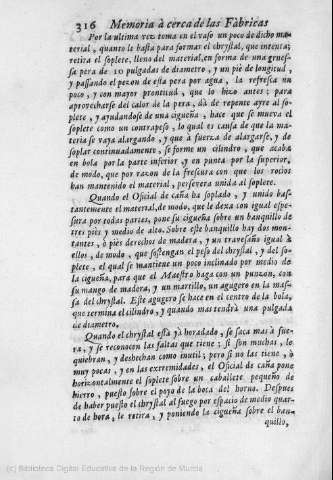 316 Memoria à cerca de las Fàbricas
Por la ultima vez toma en el vaso un poco de dicho ma-
terial, quanto le basta para formar el chrystal, que intenta;
retira el soplete, lleno del material, en forma de una grues-
sa pera de 10 pulgadas de diametro, y un piè de longitud,
y passando el pezon de esta pera por agua, la refresca un
poco, y con mayor prontitud, que lo hizo antes; para
aprovecharse del calor de la pera, dà de repente ayre al so-
plete, y ayudandose de una cigueña, hace que se mueva el
soplete como un contrapeso, lo qual es causa de que la ma-
teria se vaya alargando, y que à fuerza de alargarse, y de
soplar continuadamente, se forme un cilindro, que acaba
en bola por la parte inferior, y en punta por la superior,
de modo, que por razon de la frescura con que los rocios
han mantenido el material, persevera unida al soplete.
Quando el Oficial de caña ha soplado, y unido bas-
tantemente el material, de modo, que le dexa con igual espe-
sura por todas partes, pone su cigueña sobre un banquillo de
tres pies y medio de alto. Sobre este banquillo hay dos mon-
tantes, ò piès derechos de madera, y un travesaño igual à
ellos, de modo, que sostengan el peso del chrystal, y del so-
plete, el qual se mantiene un poco inclinado por medio de
la cigueña, para que el Maestro haga con un punzon, con
su mango de madera, y un martillo, un agugero en la mas-
sa del chrystal. Este agugero se hace en el centro de la bola,
que termina el cilindro, y quando mas tendrà una pulgada
de diametro.
Quando el chrystal està yà horadado, se saca mas à fue-
ra, y se reconocen las faltas que tiene; si son muchas, le
quiebran, y deshechan como inutil; pero si no las tiene, ò
muy pocas, y en las extremidades, el Oficial de caña pone
horizontalmente el soplete sobre un caballete pequeño de
hierro, puesto sobre el poyo de la boca del horno. Despues
de haber puesto el chrystal al fuego por espacio de medio quar-
to de hora, le retira, y poniendo la cigueña sobre el ban-
quillo,
(c) Biblioteca Digital Educativa de la Región de Murcia